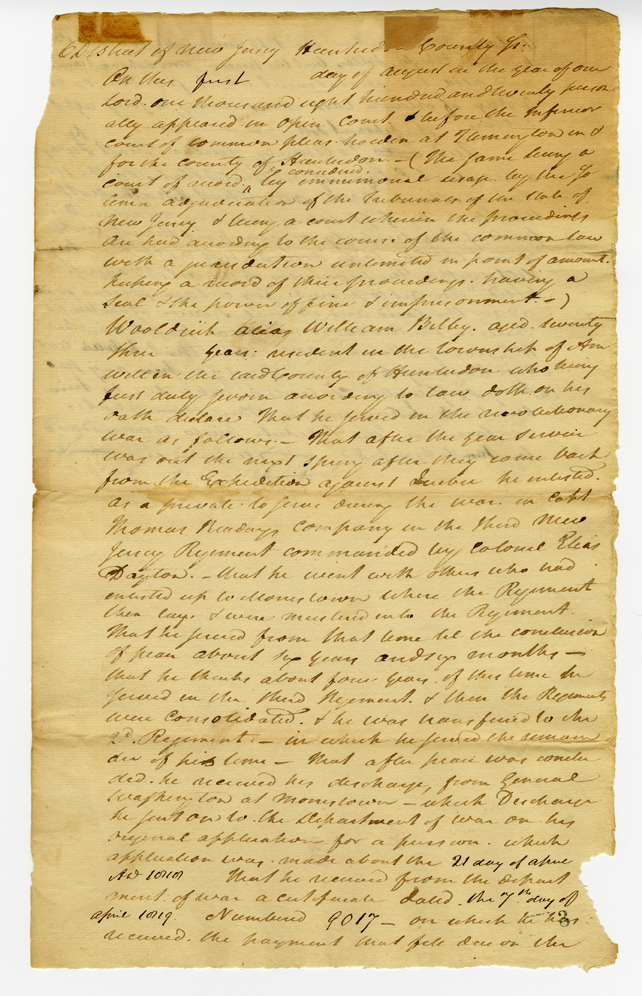 District of New Jersey Hunterdon County Ss.
On this first day of august in the year of our
Lord one thousand eight hundred and twenty person
ally appeared in open Court & before the Inferior
court of common pleas holden at Flemington in &
for the county of Hunterdon - (The same being a
considered
court of record, by immemorial usage by the So
lemn adjudication of the Tribunals of the state of
New Jersey & being a court wherein the proceedings
are had according to the course of the common law
with a jurisdiction unlimited in point of amount.
keeping a record of their proceedings. having a
Seal & the power of fine & imprisonment. -)
Wooldrick alias William Belby. aged seventy
three years resident in the township of Am
well in the said County of Hunterdon who being
first duly sworn according to law doth on his
oath declare That he served in the revolutionary
war as follows. - That after the year Service
was out the next Spring after they came back
from the Expedition against Quebec he inlisted.
as a private to serve during the war. in Capt
Thomas Readings Company in the third New
Jersey Regiment commanded by Colonel Elias
Dayton. - that he went with others who had
enlisted up to Morristown where the Regiment
then lay & were mustered into the Regiment.
That he served from that time til the conclusion
of peace about six years and six months -
that he thinks about four years of this time he
served in the third Regiment. & then the Regiments
were consolidated. & he was transferred to the
2d. Regiment. - in which he served the remain
der of his time - That after peace was conclu
ded. he received his discharge, from General
Washington at Morristown - which Discharge
he sent on to the Department of war on his
original application for a pension. which
application was made about the 21 day of april
AD 1818 That he received from the depart
ment of war a certificate dated the 7th day of
april 1819 Numbered 9017 - on which he has
3
received. the payment that fell due on the